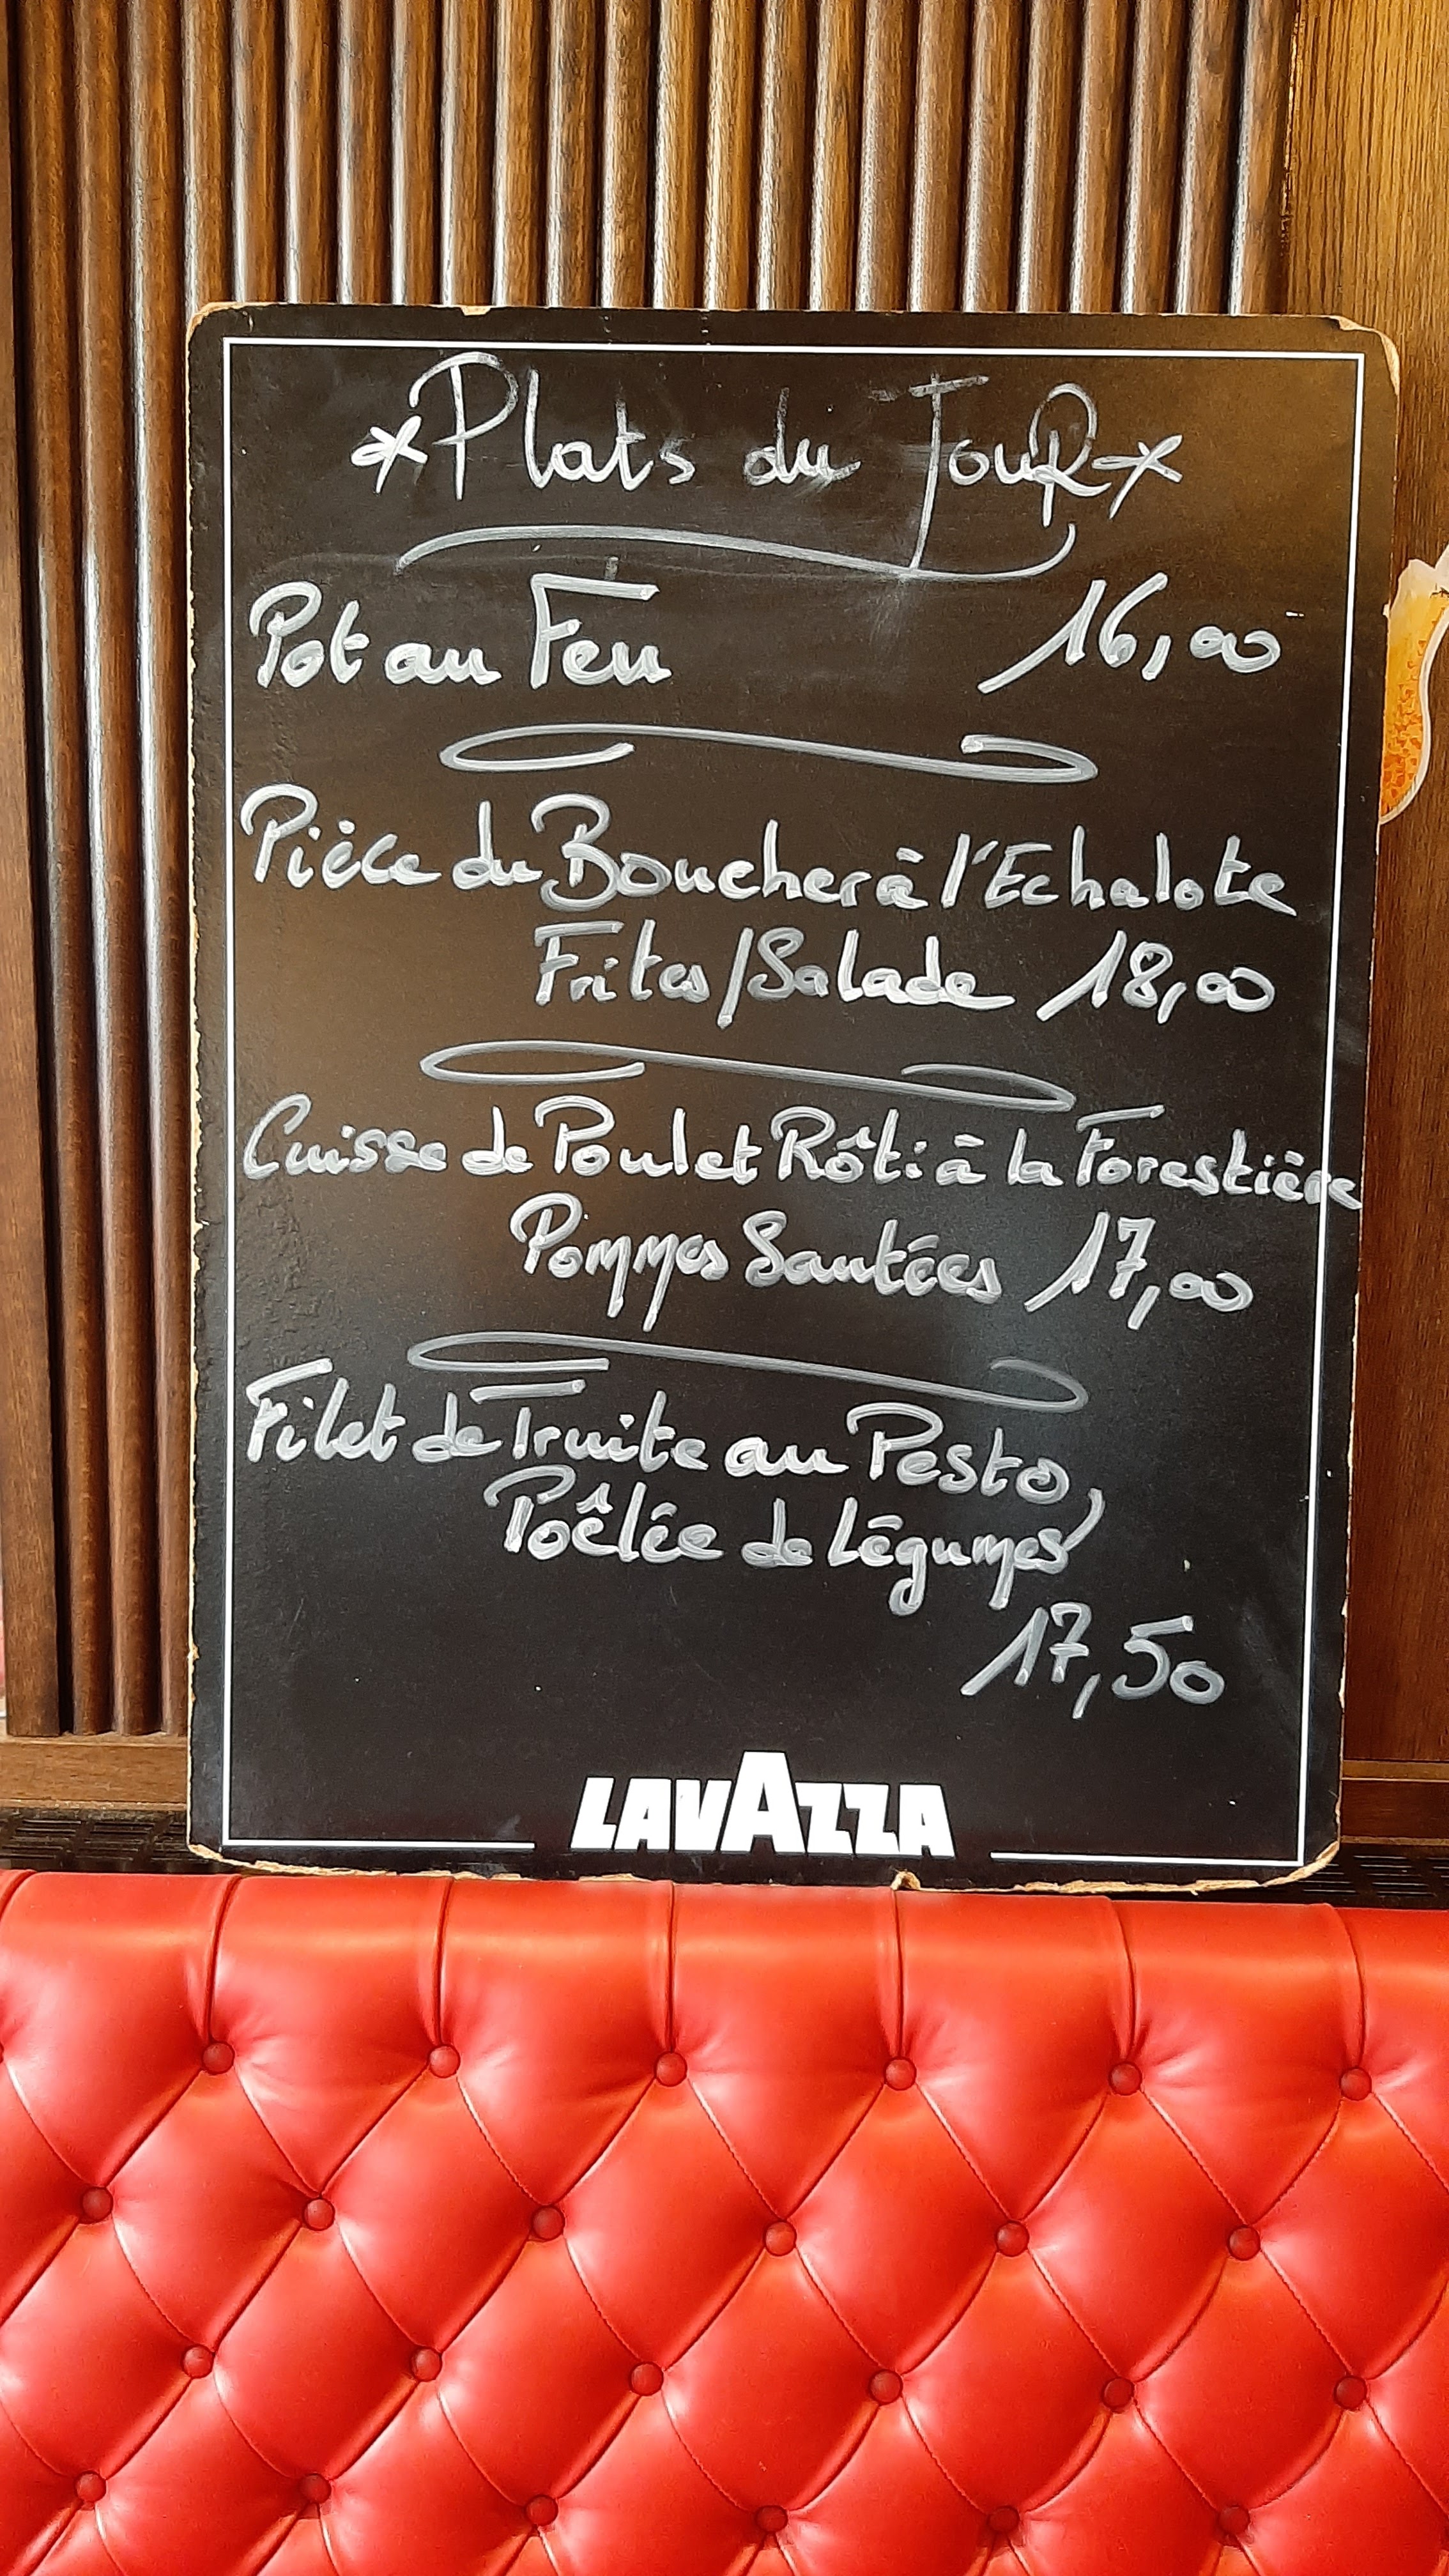 *Plats du Jour*
Pot au Feu 16,00
Pièce du Boucher à l'Echalote
Frites/Salade 18,00
Cuisse de Poulet Rôti à la Forestière
Pommes Sautées 17,00
Filet de Truite au Pesto,
Poêlée de Légumes
17,50
LAVAZZA